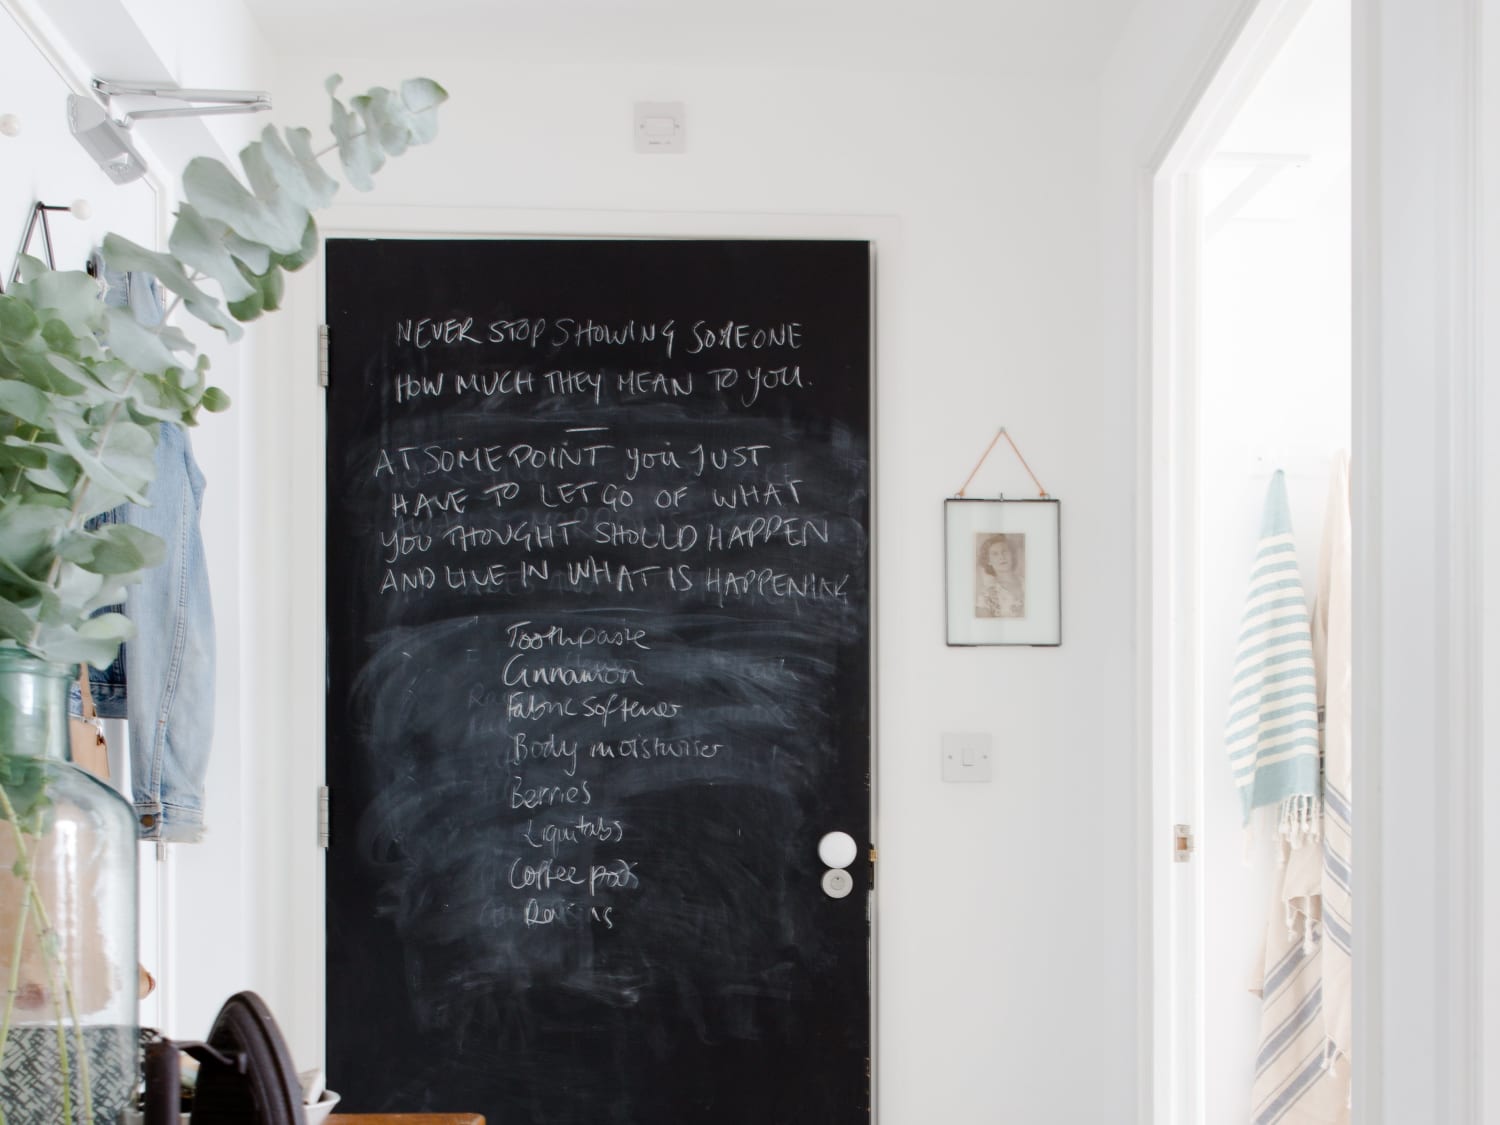 NEVER STOP SHOWING SOMEONE
HOW MUCH THEY MEAN TO YOU.
—
AT SOME POINT YOU JUST
HAVE TO LET GO OF WHAT
YOU THOUGHT SHOULD HAPPEN
AND LIVE IN WHAT IS HAPPENING
Toothpaste
Cinnamon
Fabric Softener
Body moisturiser
Berries
Liquitabs
Coffee pods
Raisins